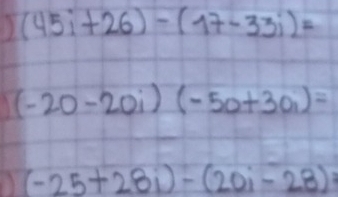 ) (45i+26)-(17-33i)=
) (-20-20i) (-50+30i)=
) (-25+28i)-(20i-28)=